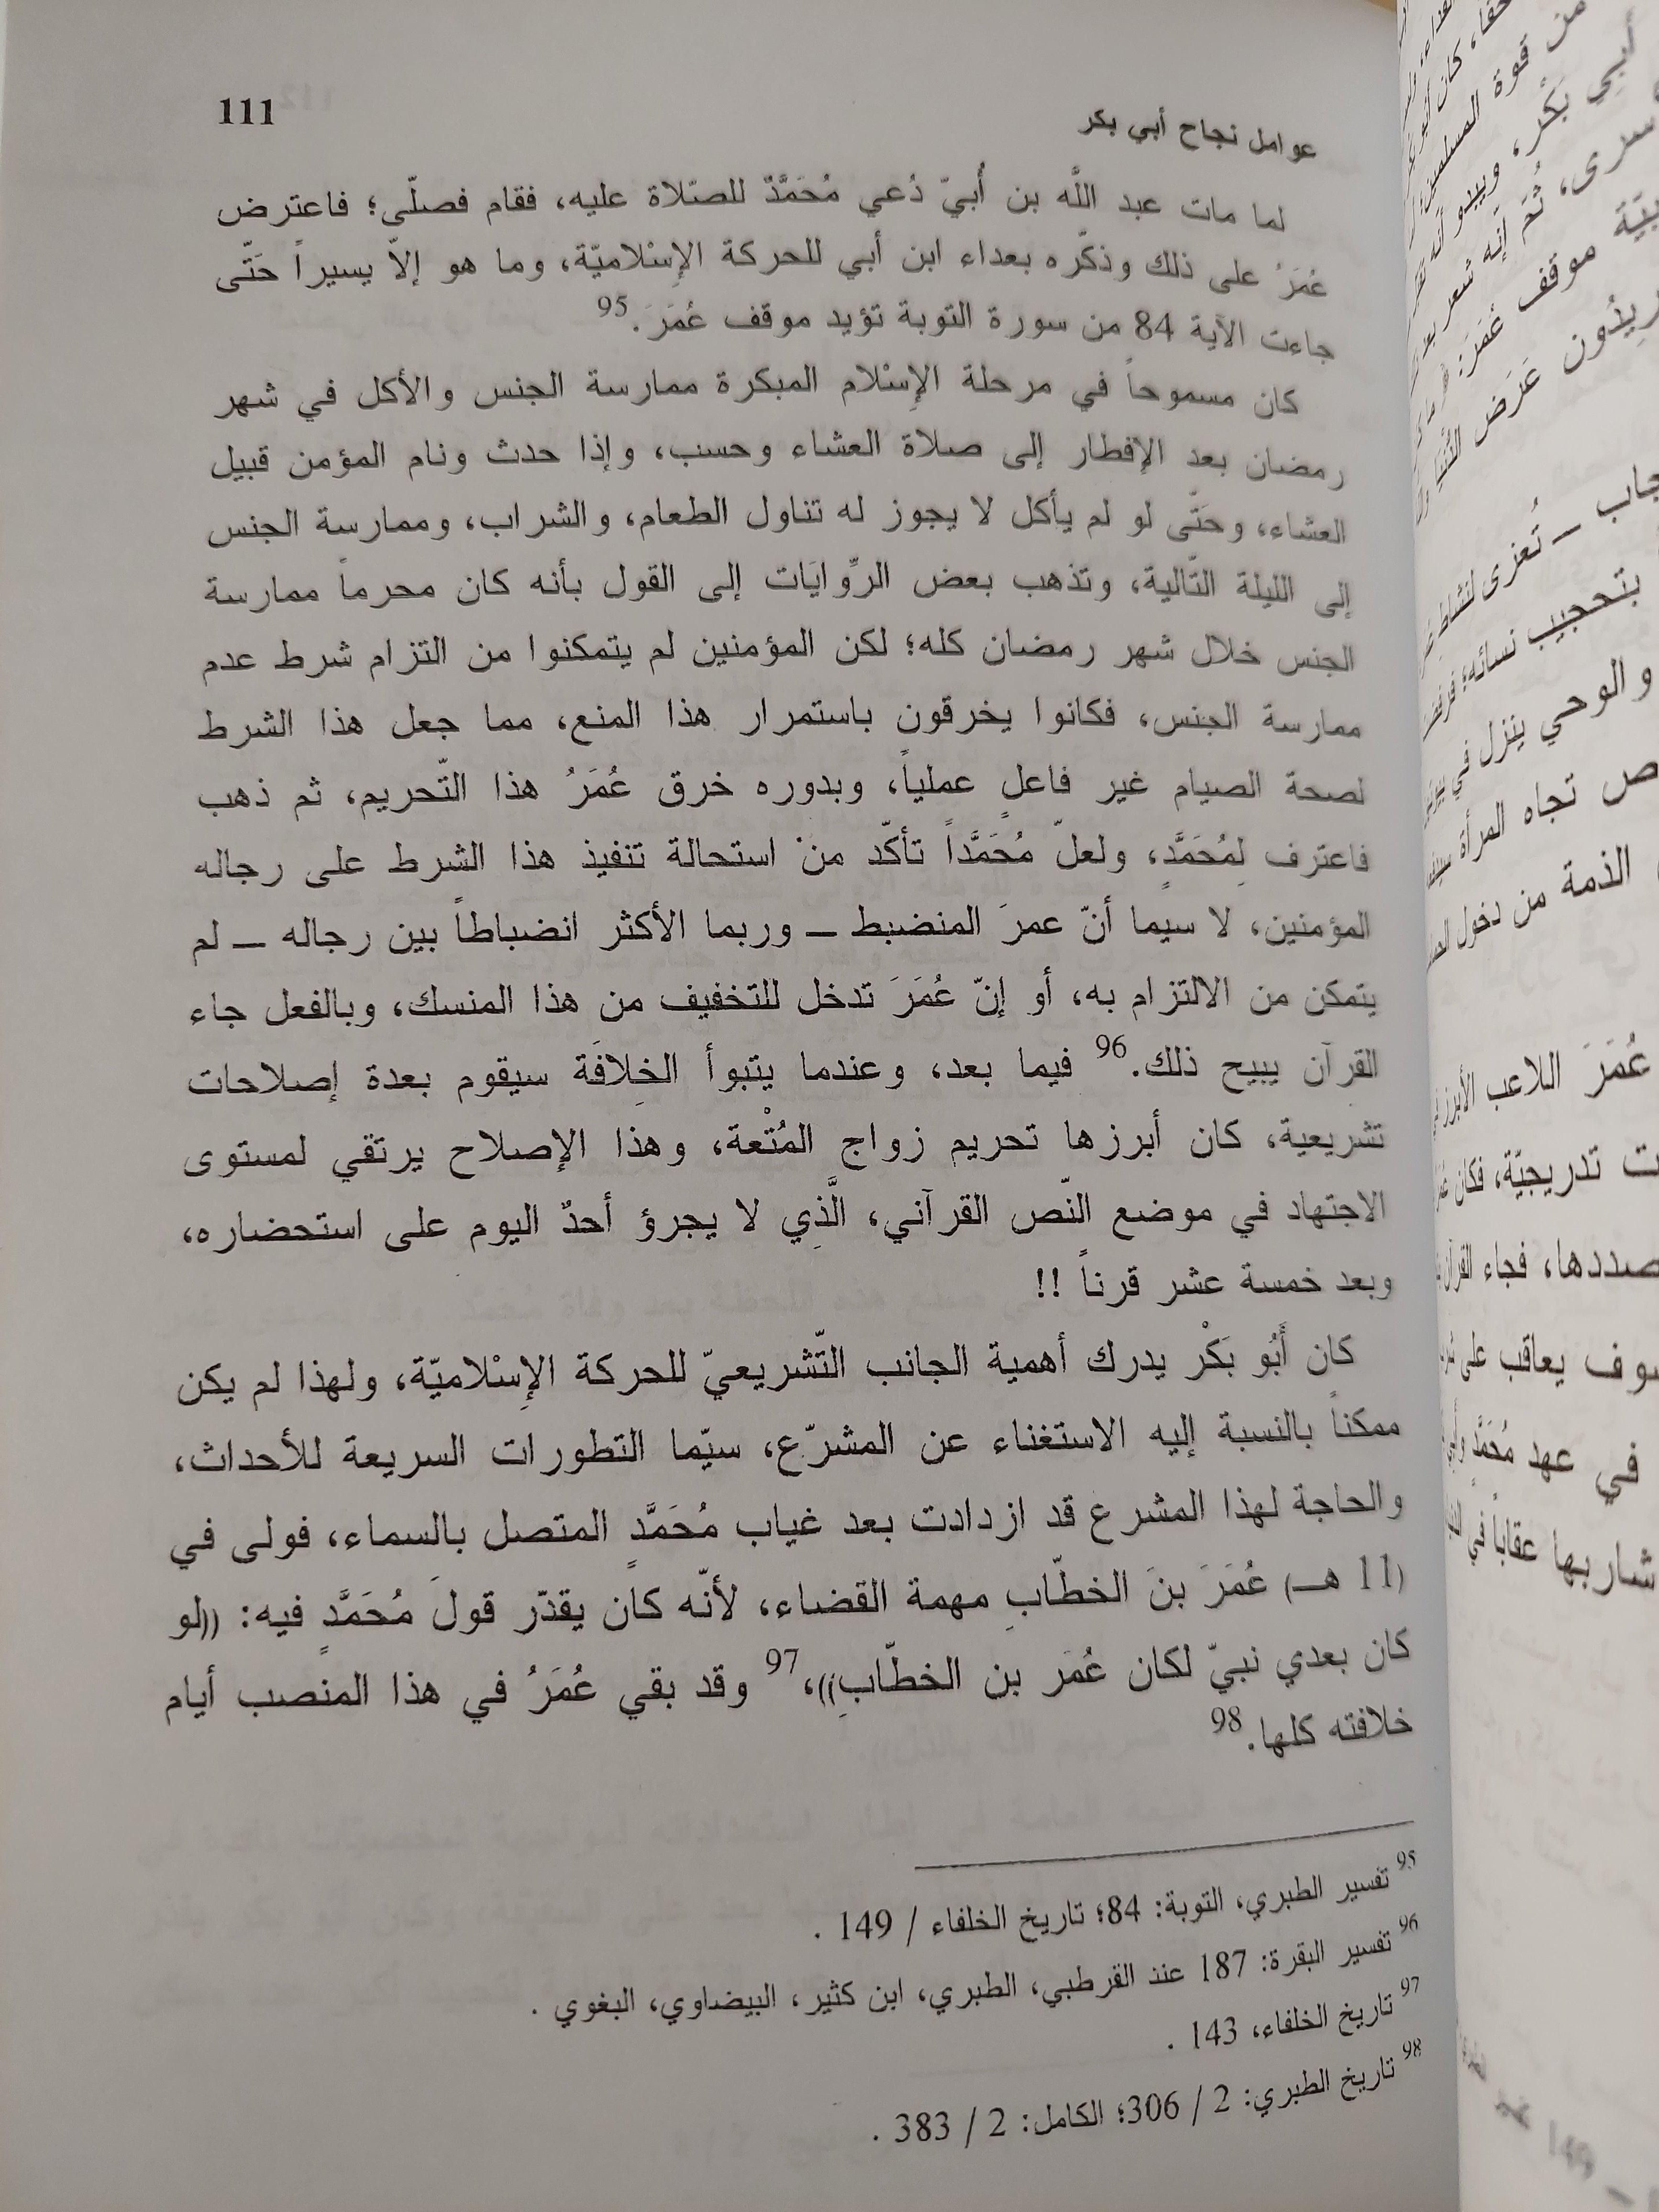 عوامل نجاح أبي بكر
111
لما مات عبد اللَّه بن أُبيّ دُعي مُحَمَّدٌ للصّلاة عليه، فقام فصلّى؛ فاعترض
عُمَرُ على ذلك وذكّره بعداء ابن أبي للحركة الإِسْلاميّة، وما هو إلاّ يسيراً حَتّى
جاءت الآية 84 من سورة التوبة تؤيد موقف عُمَرَ.95
كان مسموحاً في مرحلة الإِسْلام المبكرة ممارسة الجنس والأكل في شهر
رمضان بعد الإفطار إلى صلاة العشاء وحسب، وإذا حدث ونام المؤمن قبيل
العشاء، وحَتّى لو لم يأكل لا يجوز له تناول الطعام، والشراب، وممارسة الجنس
إلى الليلة التّالية، وتذهب بعض الرِّوايَات إلى القول بأنه كان محرماً ممارسة
الجنس خلال شهر رمضان كله؛ لكن المؤمنين لم يتمكنوا من التزام شرط عدم
ممارسة الجنس، فكانوا يخرقون باستمرار هذا المنع، مما جعل هذا الشرط
لصحة الصيام غير فاعلٍ عملياً، وبدوره خرق عُمَرُ هذا التّحريم، ثم ذهب
فاعترف لِمُحَمَّدٍ، ولعلّ مُحَمَّداً تأكّد منْ استحالة تنفيذ هذا الشرط على رجاله
المؤمنين، لا سيما أنّ عمرَ المنضبط ـ وربما الأكثر انضباطاً بين رجاله ـ لم
يتمكن من الالتزام به، أو إنّ عُمَرَ تدخل للتخفيف من هذا المنسك، وبالفعل جاء
القرآن يبيح ذلك.96 فيما بعد، وعندما يتبوأ الخِلافَة سيقوم بعدة إصلاحات
تشريعية، كان أبرزها تحريم زواج المُتْعة، وهذا الإصلاح يرتقي لمستوى
الاجتهاد في موضع النّص القرآني، الَّذِي لا يجرؤ أحدٌ اليوم على استحضاره،
وبعد خمسة عشر قرناً !!
كان أَبُو بَكْر يدرك أهمية الجانب التّشريعيّ للحركة الإِسْلاميّة، ولهذا لم يكن
ممكناً بالنسبة إليه الاستغناء عن المشرّع، سيّما التطورات السريعة للأحداث،
والحاجة لهذا المشرع قد ازدادت بعد غياب مُحَمَّدٍ المتصل بالسماء، فولى في
(11 هـ) عُمَرَ بنَ الخطّابِ مهمة القضاء، لأنّه كان يقدّر قولَ مُحَمَّدٍ فيه: ((لو
كان بعدي نبيّ لكان عُمَر بن الخطّابِ))،97 وقد بقي عُمَرُ في هذا المنصب أيام
خلافته كلها.98
95 تفسير الطبري، التوبة: 84؛ تاريخ الخلفاء / 149 .
96 تفسير البقرة: 187 عند القرطبي، الطبري، ابن كثير، البيضاوي، البغوي .
97 تاريخ الخلفاء، 143 .
98 تاريخ الطبري: 2 / 306؛ الكامل: 2 / 383 .
من قوة المسلمين
أبي بَكْر، ويبدو أنه
أسرى، ثُمّ إنّه شعر بعد
موقف عُمَرَ:
يرِيدُون عَرَض الدُّنْيَا
ـ تُعزى لنشاط
بتحجيب نسائه؛
والوحي ينزل في
تجاه المرأة
الذمة من دخول
عُمَرَ اللاعب الأبرز
تدريجيّة، فكان
صددها، فجاء القرآن
سوف يعاقب على
في عهد مُحَمَّدٍ
شاربها عقاباً في